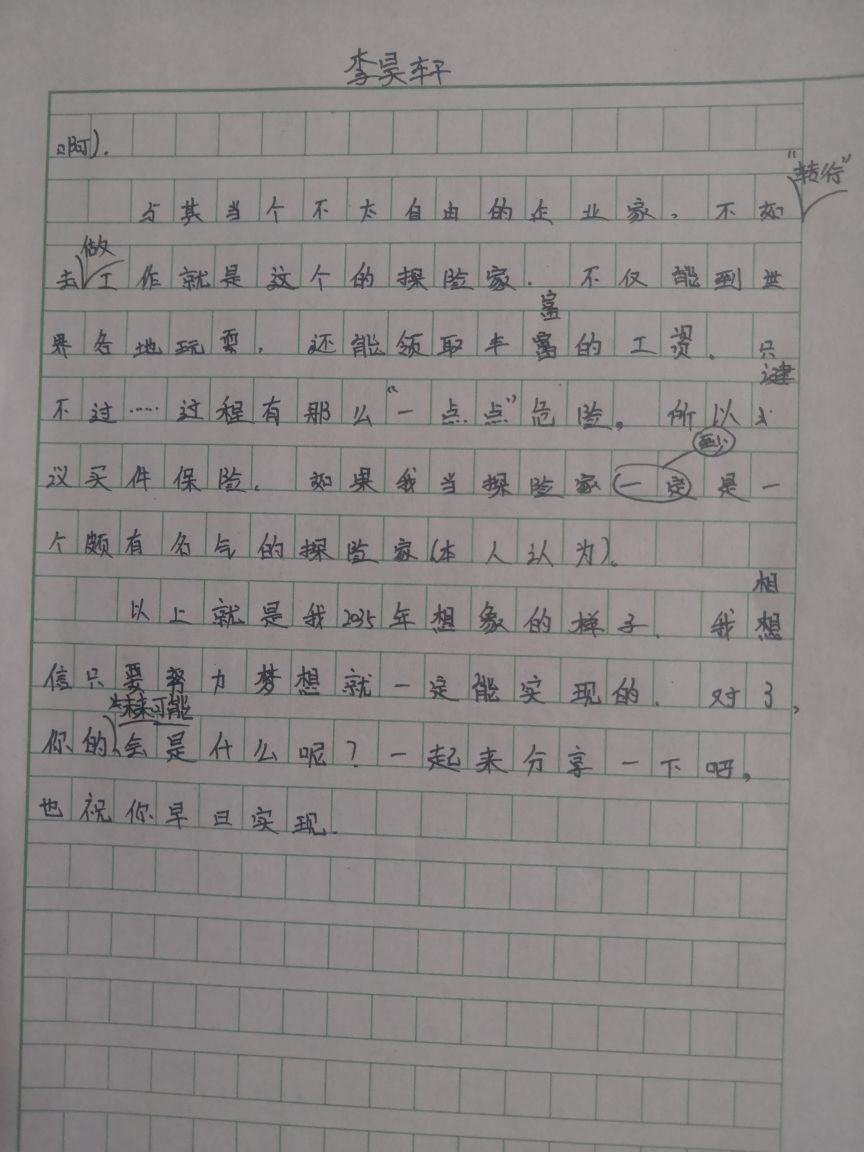 李昊轩
啊).
与其当个不太自由的企业家,不如“转行”
去做工作就是这个的探险家.不仅能到世
界各地玩耍,还能领取丰富的工资.只
不过……过程有那么“一点点”危险,所以建
议买件保险.如果我当探险家一定是一
个颇有名气的探险家(本人认为)。
以上就是我2035年想象的样子.我相
信只要努力梦想就一定能实现的.对了,
你的未来可能会是什么呢?一起来分享一下吧,
也祝你早日实现.